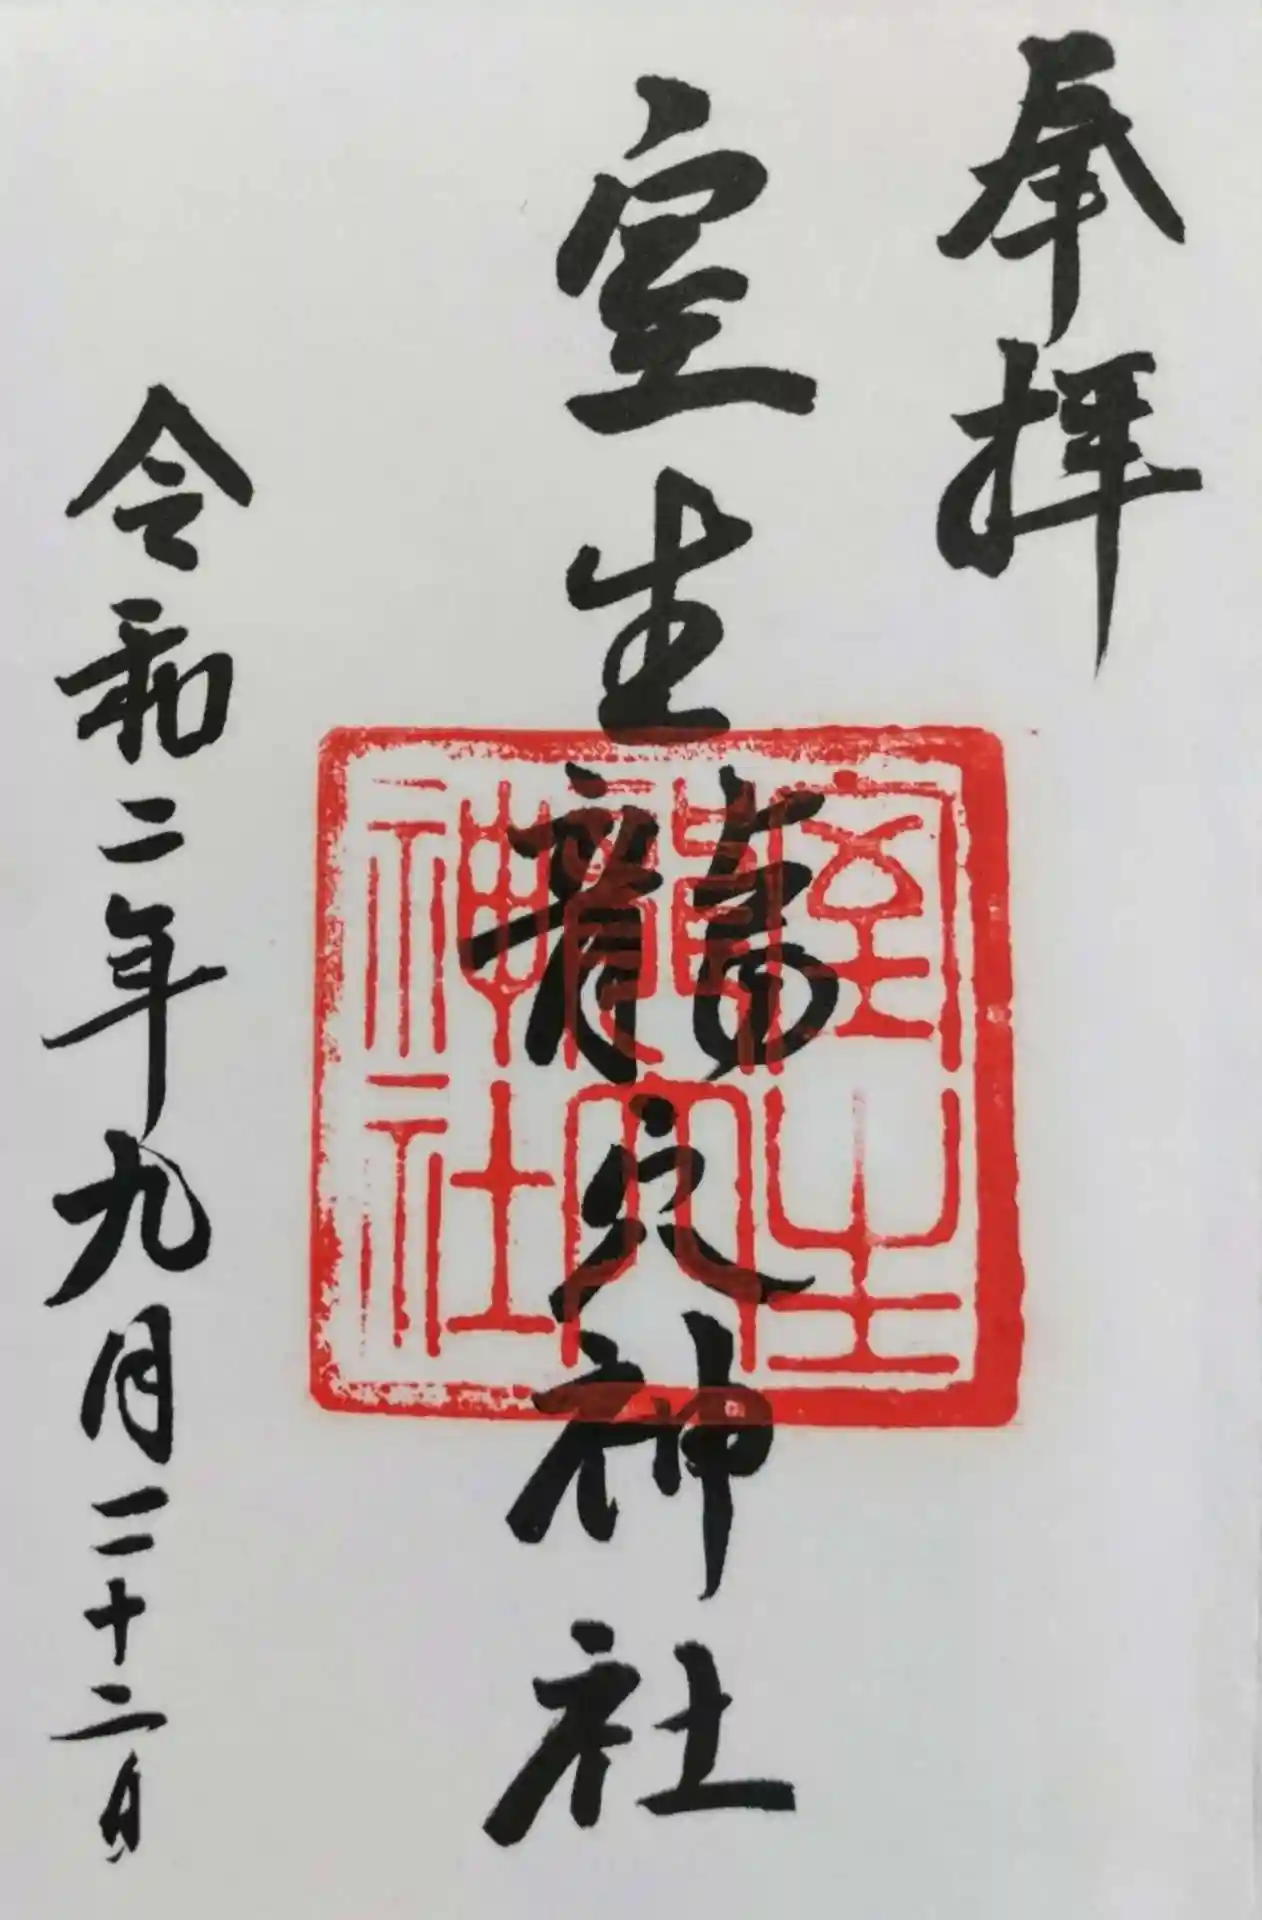 奉拝
室生龍穴神社
室生
龍穴
神社
令和二年九月二十二日